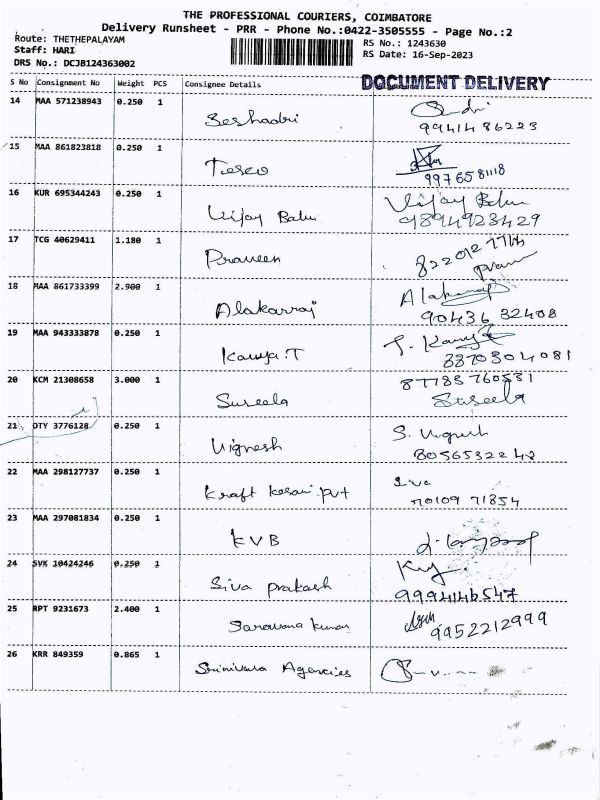 THE PROFESSIONAL COURIERS, COIMBATORE
Delivery Runsheet - PRR - Phone No.:0422-3505555 - Page No.:2
Route: THETHEPALAYAM
RS No.: 1243630
Staff: HARI
RS Date: 16-Sep-2023
DRS No.: DCJB124363002
DOCUMENT DELIVERY
S No Consignment No Weight PCS Consignee Details
14 MAA 571238943 0.250 1
Seshadri
99414 86223
15 MAA 861823818 0.250 1
99765 81118
16 KUR 695344243 0.250 1
Vijay Babu Vijay Babu
9894923429
17 TCG 40629411 1.180 1
Praveen
18 MAA 861733399 2.900 1
Alakarraj
90436 32408
19 MAA 943333878 0.250 1
Kavya.T
20 KCM 21308658 3.000 1
87783 760531
Suseela Suseela
21 OTY 3776128 0.250 1
Vignesh S. Vignesh
22 MAA 298127737 0.250 1
Siva
Kraft Kesari pvt 70109 71854
23 MAA 297081834 0.250 1
KVB
24 SVK 10424246 0.250 1
Siva prakash
9994146547
25 RPT 9231673 2.400 1
Saravana kumar 9952212999
26 KRR 849359 0.865 1
Srinivasa Agencies